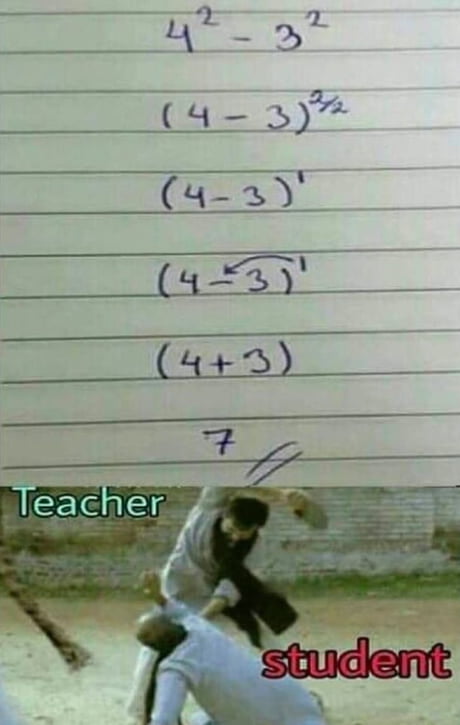 4² - 3²
(4 - 3)^2/2
(4 - 3)¹
(4 - 3)¹
(4 + 3)
7
Teacher
student